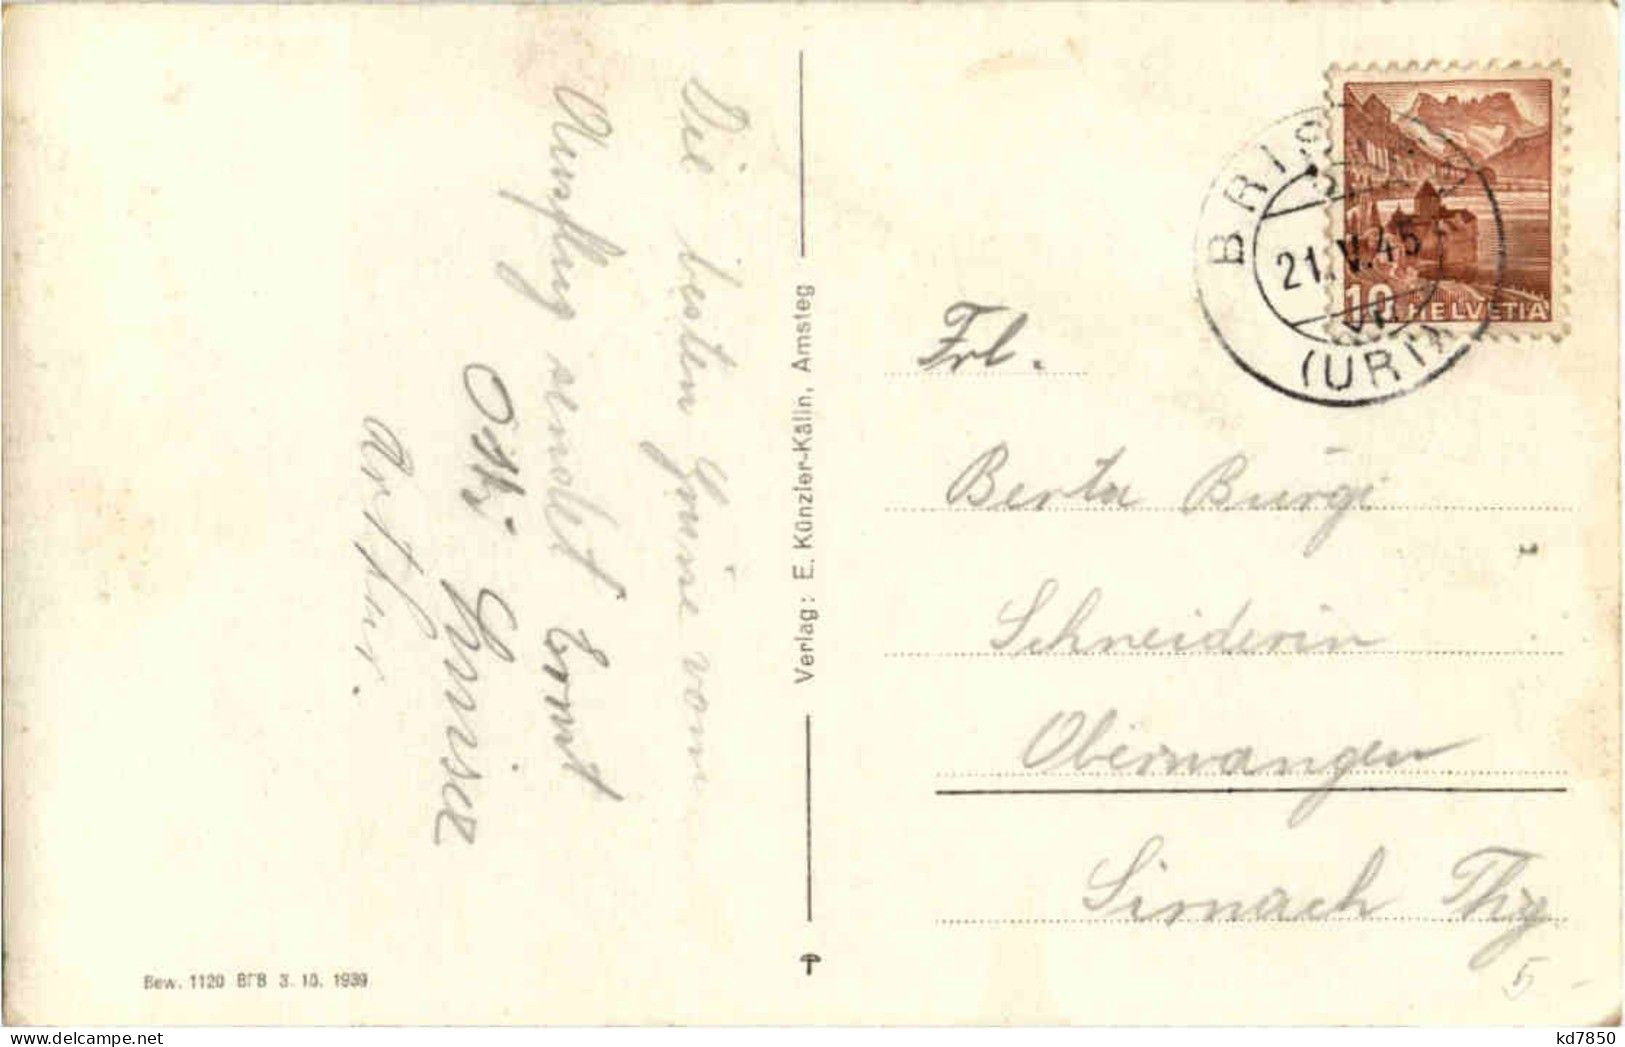 Die besten Grüsse vom
Ausflug sendet Ernst
Otti Grüsse
Arthur.
Verlag: E. Künzler-Kälin, Amsteg
BRIS
21.V.45
(URI)
10 HELVETIA
Frl.
Berta Bürgi
Schneiderin
Oberwangen
Sirnach Thg
5
Bew. 1120 BFB 3. 10. 1939
kd7850